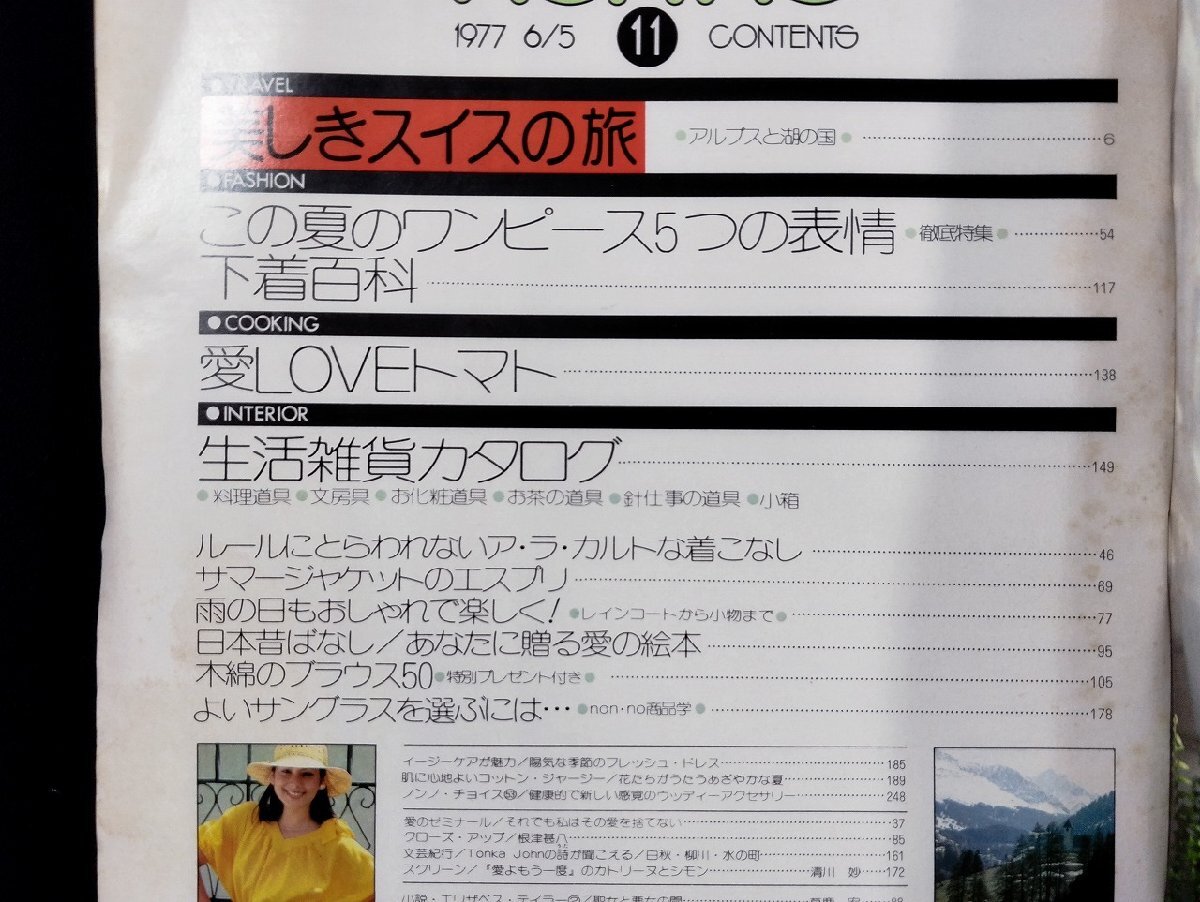 1977 6/5 11 CONTENTS
●TRAVEL
美しきスイスの旅 ●アルプスと湖の国● 6
●FASHION
この夏のワンピース5つの表情 ●徹底特集● 54
下着百科 117
●COOKING
愛LOVEトマト 138
●INTERIOR
生活雑貨カタログ 149
●料理道具●文房具●お化粧道具●お茶の道具●針仕事の道具●小箱
ルールにとらわれないア・ラ・カルトな着こなし 46
サマージャケットのエスプリ 69
雨の日もおしゃれで楽しく! ●レインコートから小物まで● 77
日本昔ばなし/あなたに贈る愛の絵本 95
木綿のブラウス50●特別プレゼント付き● 105
よいサングラスを選ぶには… ●non・no商品学● 178
イージーケアが魅力/陽気な季節のフレッシュ・ドレス 185
肌に心地よいコットン・ジャージー/花たちがうたうあざやかな夏 189
ノンノ・チョイス㊳/健康的で新しい感覚のウッディーアクセサリー 248
愛のゼミナール/それでも私はその愛を捨てない 37
クローズ・アップ/根津甚八 85
文芸紀行/Tonka Johnの詩が聞こえる/白秋・柳川・水の町 161
スクリーン/「愛よもう一度」のカトリーヌとシモン 清川 妙 172
小説・エリザベス・テイラー②/聖女と悪女の間